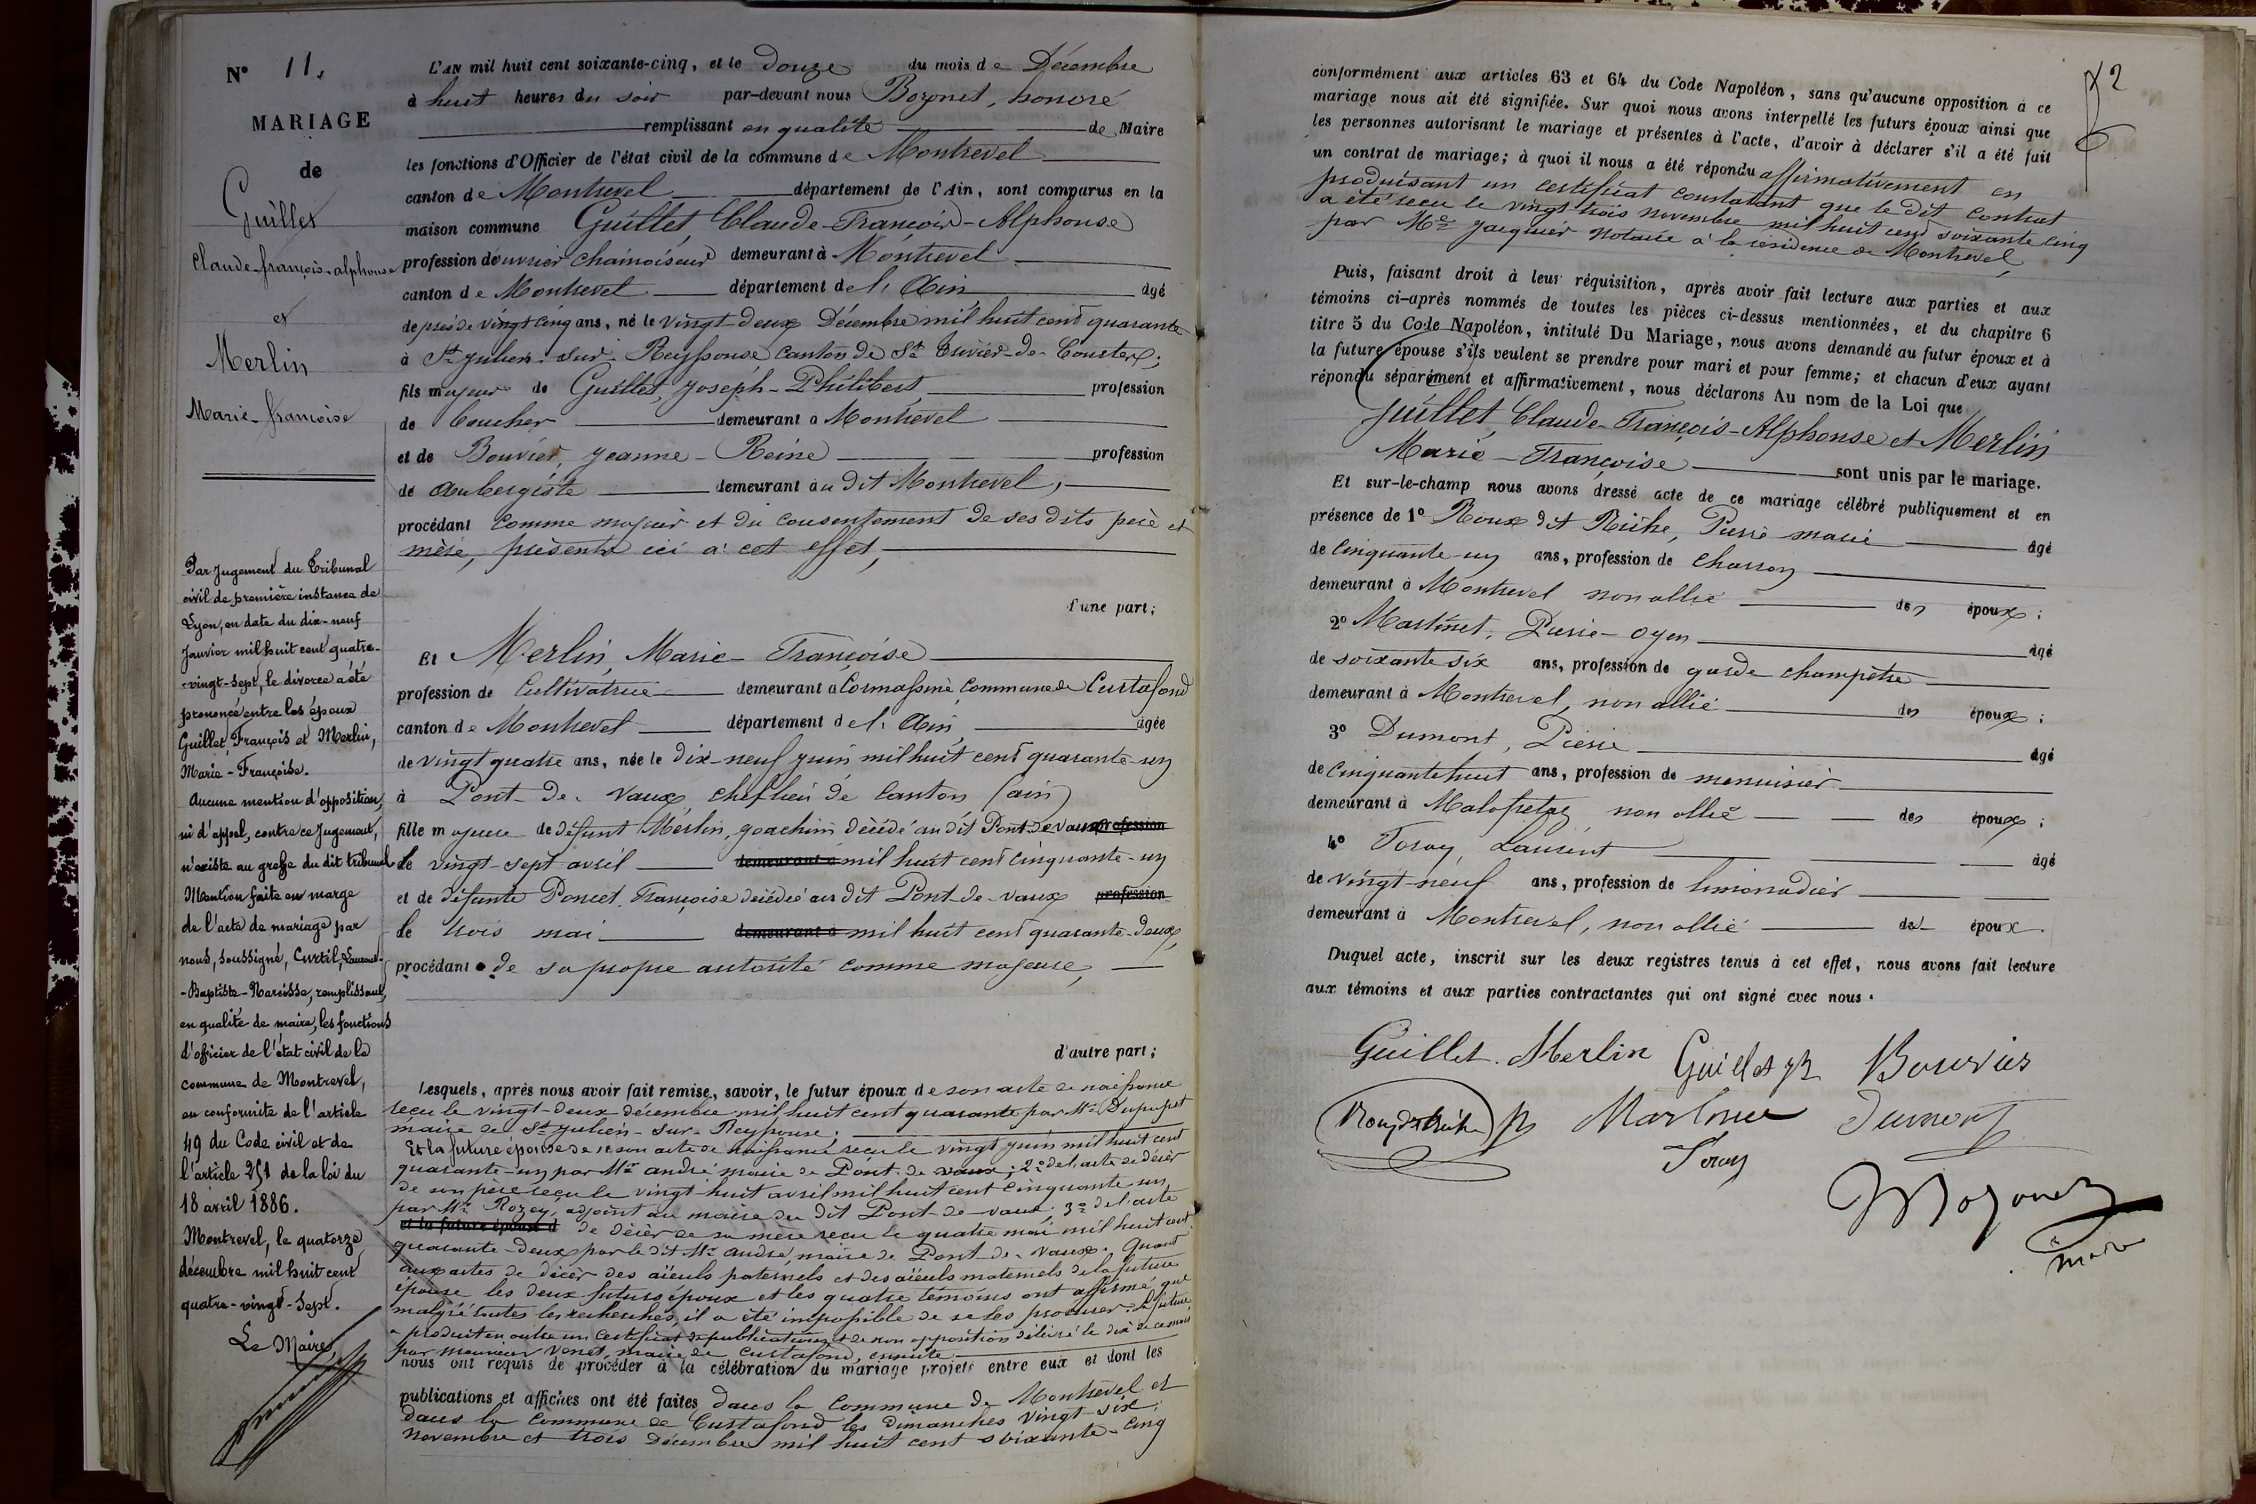 N° 11.
MARIAGE
de
Guillet
Claude-françois-alphonse
et
Merlin
Marie-françoise
Par Jugement du Tribunal
civil de première instance de
Lyon, en date du dix-neuf
Janvier mil huit cent quatre-
-vingt-sept, le divorce a été
prononcé entre les époux
Guillet, François et Merlin,
Marie-Françoise.
Aucune mention d'opposition,
ni d'appel, contre ce Jugement,
n'existe au greffe du dit tribunal
Mention faite en marge
de l'acte de mariage par
nous, soussigné, Curtil, Laurent-
-Baptiste-Narcisse, remplissant,
en qualité de maire, les fonctions
d'officier de l'état civil de la
commune de Montrevel,
en conformité de l'article
49 du Code civil et de
l'article 251 de la loi du
18 avril 1886.
Montrevel, le quatorze
décembre mil huit cent
quatre-vingt-sept.
Le Maire,
L'AN mil huit cent soixante-cinq, et le douze du mois de Décembre
à huit heures du soir par-devant nous Bozonet, honoré
remplissant en qualité de Maire
les fonctions d'Officier de l'état civil de la commune de Montrevel
canton de Montrevel département de l'Ain, sont comparus en la
maison commune Guillet, Claude-François-Alphonse
profession d'ouvrier chamoiseur demeurant à Montrevel
canton de Montrevel département de l'Ain âgé
de près de vingt cinq ans, né le vingt-deux Décembre mil huit cent quarante
à St Julien-sur-Reyssouse canton de St Trivier-de-Courtes;
fils majeur de Guillet, Joseph-Philibert profession
de boucher demeurant à Montrevel
et de Bouvier, Jeanne-Reine profession
de aubergiste demeurant au dit Montrevel,
procédant comme majeur et du consentement de ses dits père et
mère, présents ici à cet effet,
d'une part;
Et Merlin, Marie-Françoise
profession de Cultivatrice demeurant à Cormassine commune de Curtafond
canton de Montrevel département de l'Ain, âgée
de vingt quatre ans, née le dix-neuf juin mil huit cent quarante-un
à Pont-de-Vaux, chef lieu de canton (ain)
fille majeure de défunt Merlin, Joachim décédé au dit Pont-de-vaux profession
le vingt-sept avril demeurant à mil huit cent cinquante-un
et de défunte Poncet, Françoise décédée au dit Pont-de-vaux profession
le trois mai demeurant à mil huit cent quarante-deux,
procédant de sa propre autorité comme majeure,
d'autre part;
Lesquels, après nous avoir fait remise, savoir, le futur époux de son acte de naissance
reçu le vingt-deux décembre mil huit cent quarante par Mr Dupupet
maire de St Julien-sur-Reyssouse;
Et la future épouse de 1° son acte de naissance reçu le vingt juin mil huit cent
quarante-un par Mr andré maire de Pont-de-vaux; 2° de l'acte de décès
de son père reçu le vingt huit avril mil huit cent cinquante un
par Mr Rozey, adjoint au maire du dit Pont-de-vaux; 3° de l'acte
et la future épouse d de décès de sa mère reçu le quatre mai mil huit cent
quarante-deux par le dit Mr andré, maire de Pont-de-vaux. Quant
aux actes de décès des aïeuls paternels et des aïeuls maternels de la future
épouse les deux futurs époux et les quatre témoins ont affirmé que
malgré toutes les recherches, il a été impossible de se les procurer. La future
a produit en outre un certificat de publications et de non opposition délivré le dix de ce mois
par monsieur Venet, maire de Curtafond, ensuite
nous ont requis de procéder à la célébration du mariage projeté entre eux et dont les
publications et affiches ont été faites dans la commune de Montrevel et
dans la commune de Curtafond les Dimanches vingt-six
novembre et trois décembre mil huit cent soixante-cinq
conformément aux articles 63 et 64 du Code Napoléon, sans qu'aucune opposition à ce
mariage nous ait été signifiée. Sur quoi nous avons interpellé les futurs époux ainsi que
les personnes autorisant le mariage et présentes à l'acte, d'avoir à déclarer s'il a été fait
un contrat de mariage; à quoi il nous a été répondu affirmativement en
produisant un certificat constatant que le dit contrat
a été reçu le vingt trois novembre mil huit cent soixante cinq
par Me Jacquier Notaire à la résidence de Montrevel,
Puis, faisant droit à leur réquisition, après avoir fait lecture aux parties et aux
témoins ci-après nommés de toutes les pièces ci-dessus mentionnées, et du chapitre 6
titre 5 du Code Napoléon, intitulé Du Mariage, nous avons demandé au futur époux et à
la future épouse s'ils veulent se prendre pour mari et pour femme; et chacun d'eux ayant
répondu séparément et affirmativement, nous déclarons Au nom de la Loi que
Guillet, Claude-François-Alphonse et Merlin
Marie-Françoise sont unis par le mariage.
Et sur-le-champ nous avons dressé acte de ce mariage célébré publiquement et en
présence de 1° Roux dit Riche, Pierre marie âgé
de cinquante-un ans, profession de charron
demeurant à Montrevel non allié des époux;
2° Martinet, Pierre-oyen âgé
de soixante six ans, profession de garde champêtre
demeurant à Montrevel, non allié des époux;
3° Dumont, Pierre âgé
de cinquante huit ans, profession de menuisier
demeurant à Malafretaz non allié des époux;
4° Foray, Laurent âgé
de vingt-neuf ans, profession de limonadier
demeurant à Montrevel, non allié des époux.
Duquel acte, inscrit sur les deux registres tenus à cet effet, nous avons fait lecture
aux témoins et aux parties contractantes qui ont signé avec nous.
Guillet. Merlin Guillet Bouvier
Dumont
Foray
Bozonet
maire